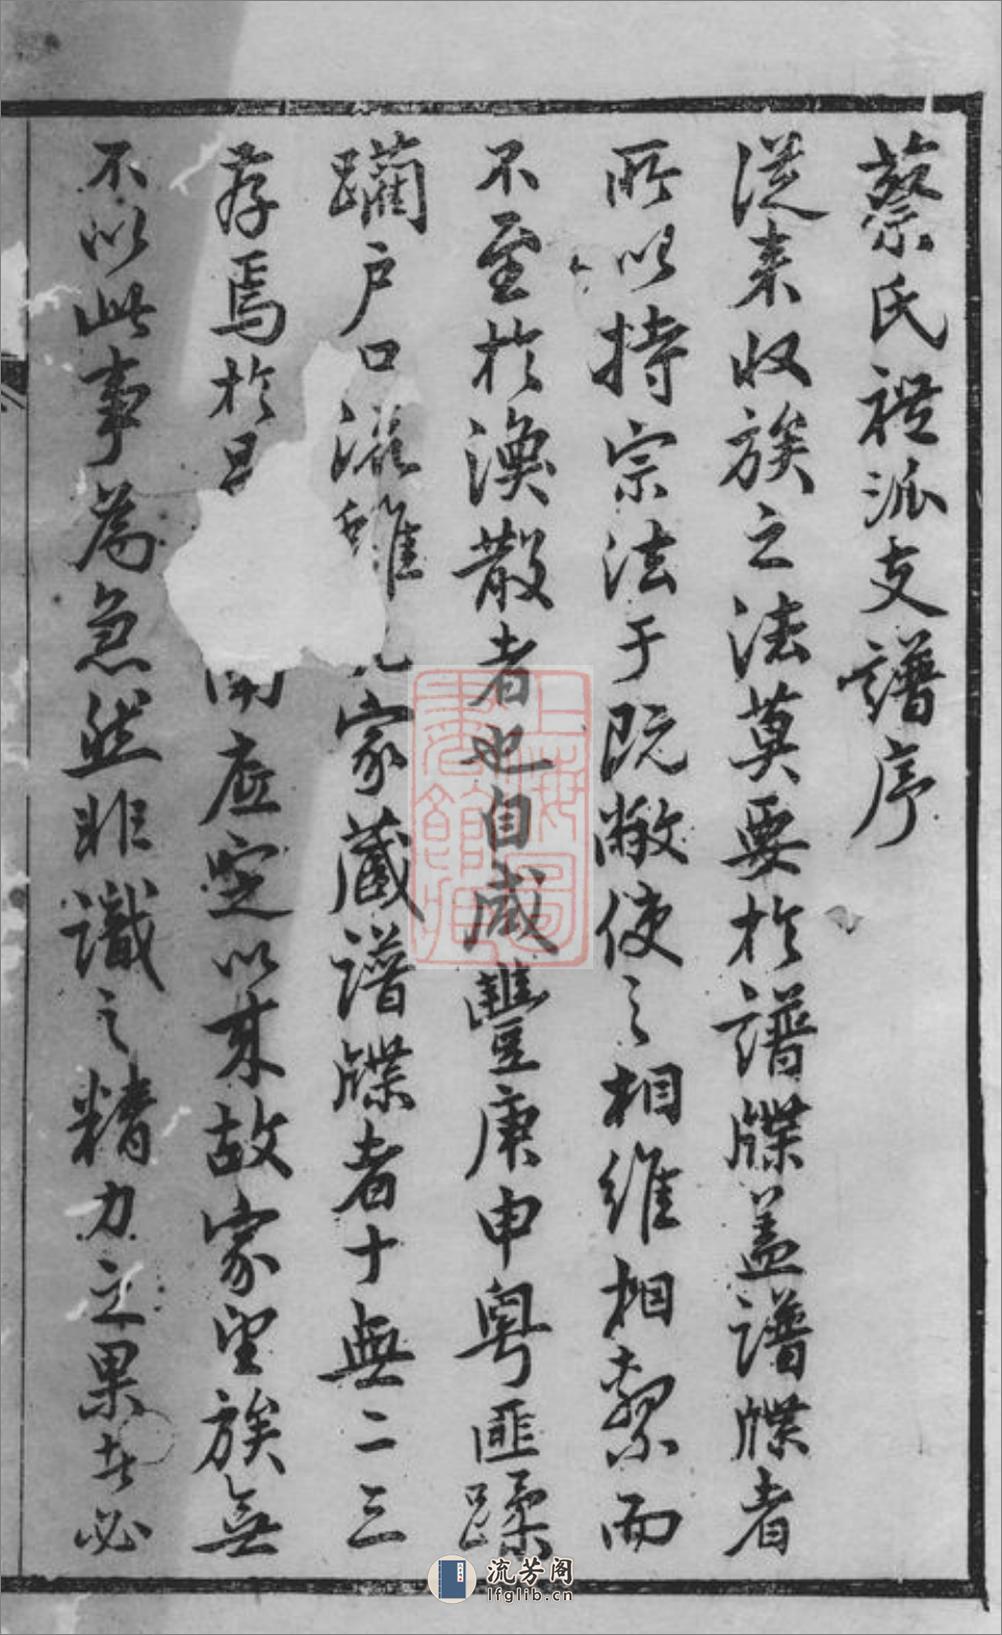 蔡氏禮派支譜序
從来収族之法莫要於譜牒盖譜牒者
所以持宗法于既敝使之相維相繫而
不至於渙散者也自咸豐庚申粤匪蹂
躪户口流離家藏譜牒者十無二三
存焉於是開虚空以来故家望族無
不以此事為急然非識之精力之果者必
上海圖書館藏
流芳阁
lfglib.cn